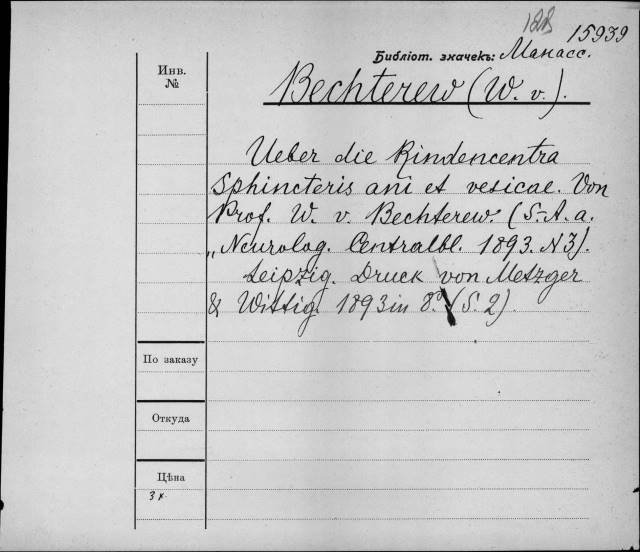 188 15939
Библіот. значекъ: Манасс.
Инв.
№
Bechterew (W. v.).
Ueber die Rindencentra
Sphincteris ani et vesicae. Von
Prof. W. v. Bechterew. (S.-A. a.
„Neurolog. Centralbl. 1893. N 3).
Leipzig. Druck von Metzger
& Wittig. 1893 in 8°. (S. 2).
По заказу
Откуда
Цѣна
3 к